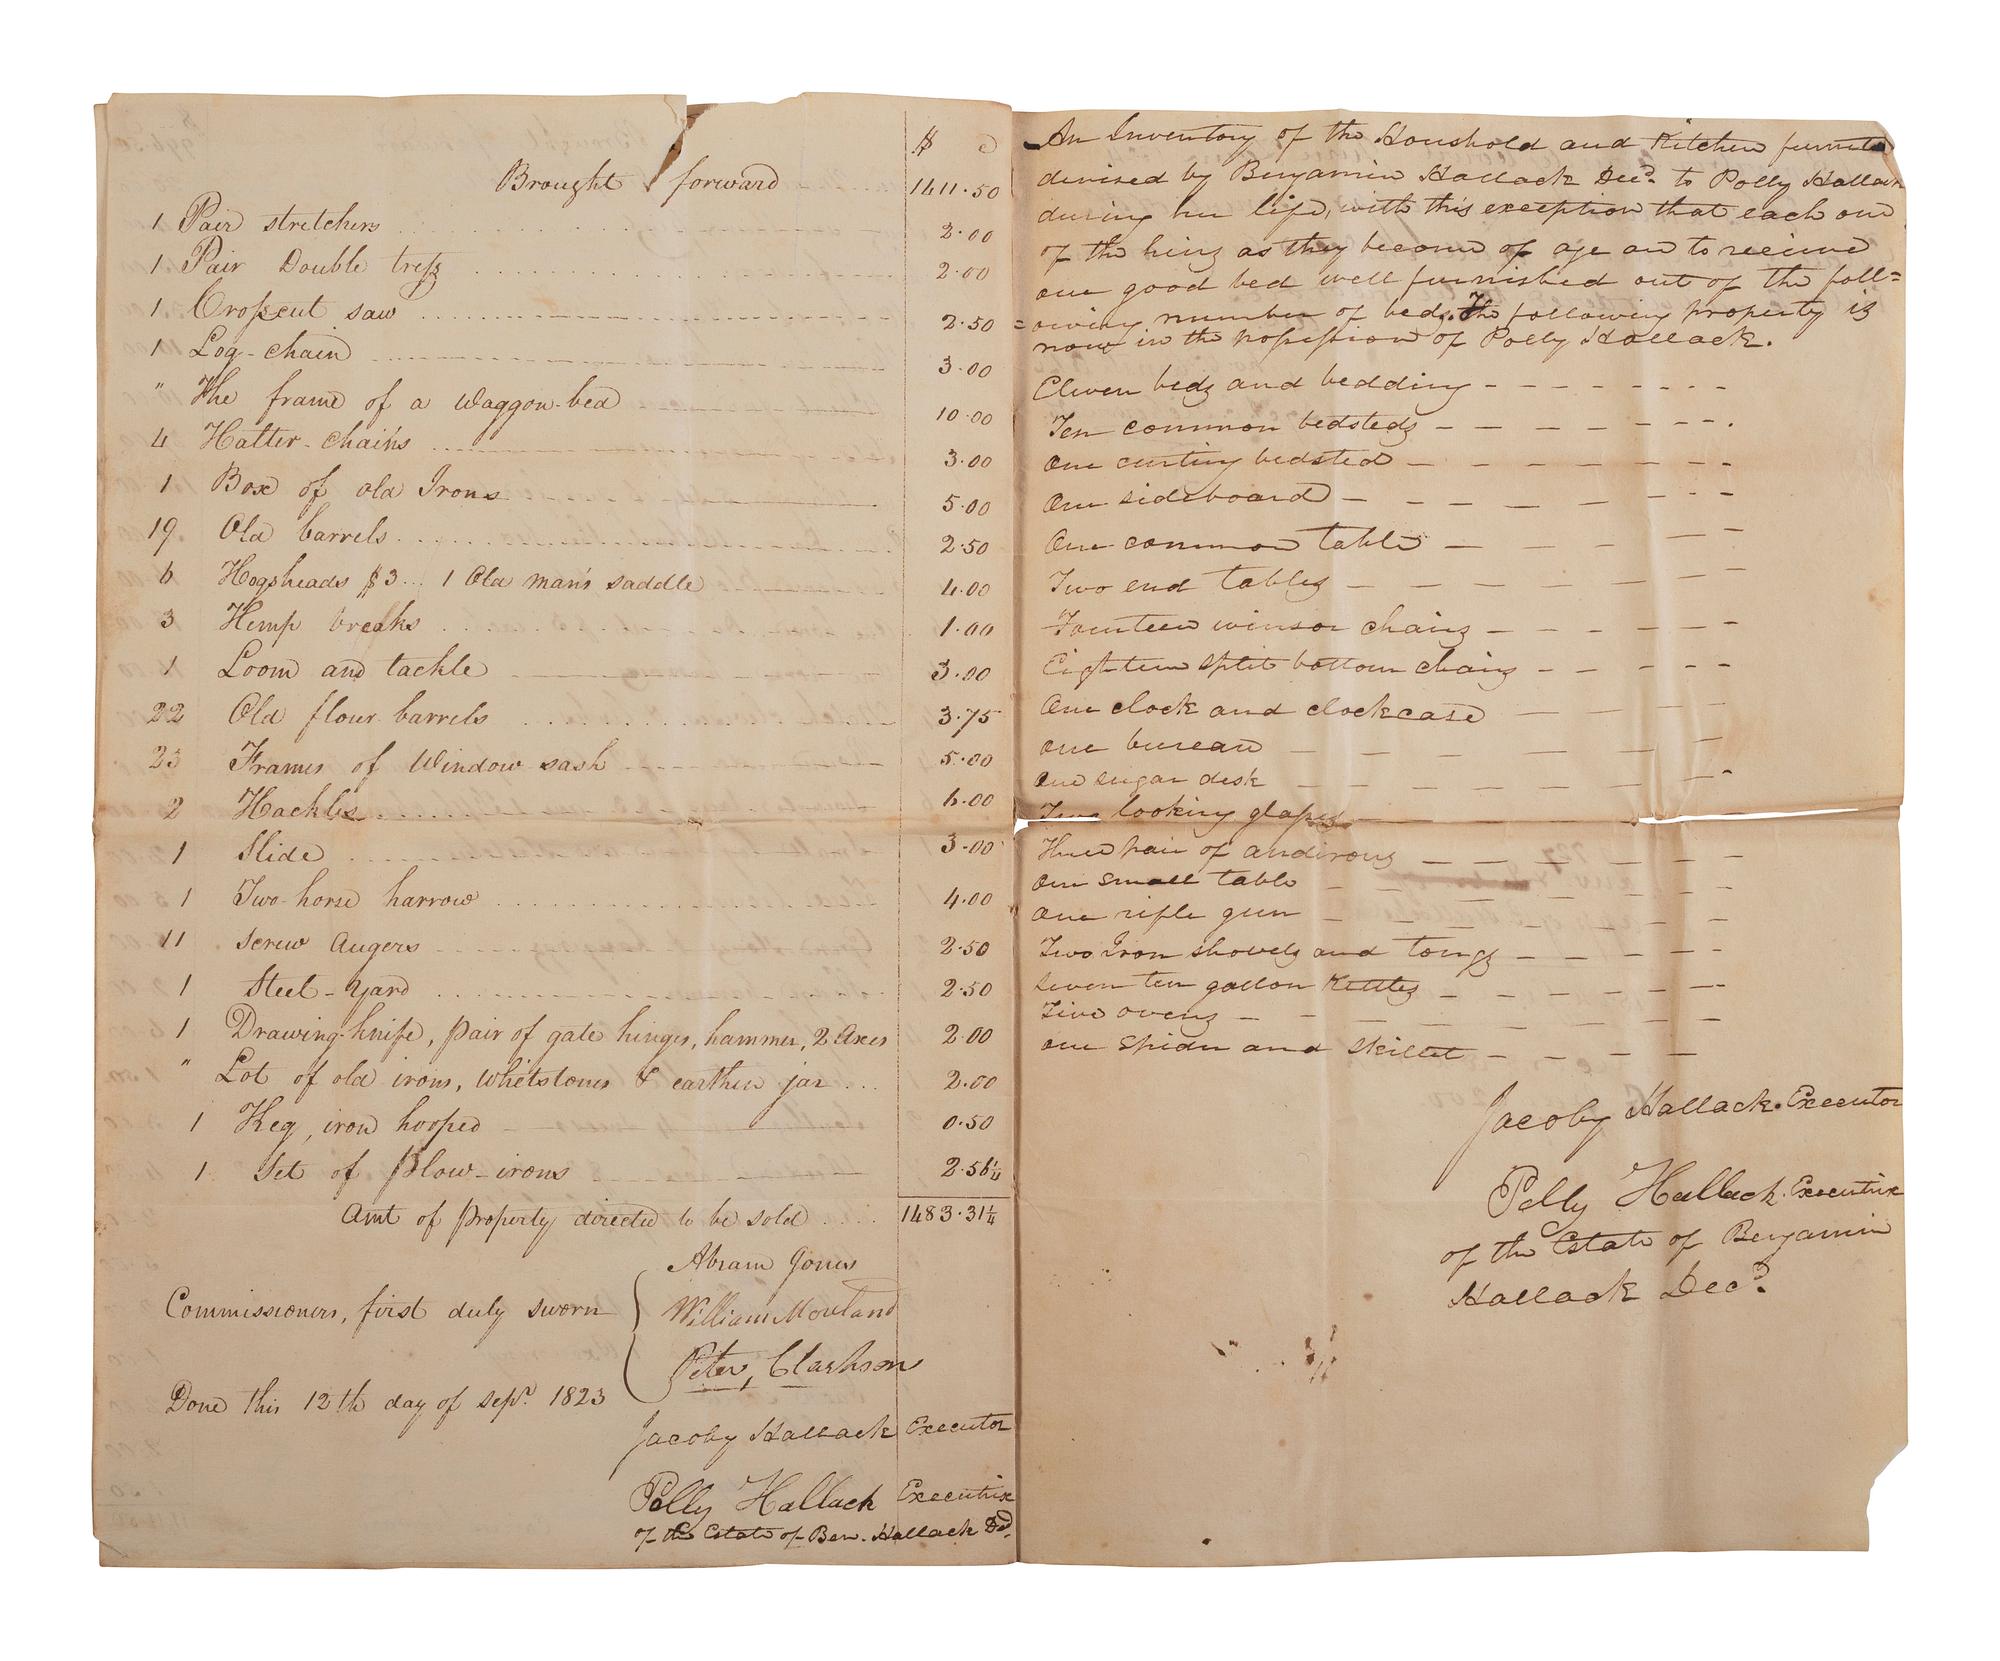 $ C
Brought forward 1411.50
1 Pair stretchers 2.00
1 Pair Double treſs 2.00
1 Croſscut saw 2.50
1 Log-chain 3.00
" The frame of a Waggon-bed 10.00
4 Halter-chains 3.00
1 Box of old Irons 5.00
19 Old barrels 2.50
6 Hogsheads $3 1 Old man's saddle 4.00
3 Hemp breaks 1.00
1 Loom and tackle 3.00
22 Old flour barrels 3.75
23 Frames of Window sash 5.00
2 Hackles 6.00
1 Slide 3.00
1 Two-horse harrow 4.00
11 Screw Augers 2.50
1 Steel-Yard 2.50
1 Drawing-knife, pair of gate hinges, hammer, 2 Axes 2.00
" Lot of old irons, Whetstones & earthen jar 2.00
1 Keg, iron hooped 0.50
1 Set of Plow-irons 2.56¼
Amt of Property directed to be sold 1483.31¼
Commissioners, first duly sworn
Abram Jones
William Moreland
Peter, Clarkson
Done this 12th day of sepr. 1823
Jacoby Hallack Executor
Polly Hallack Executrix
of the Estate of Ben. Hallack Decd.
An Inventory of the Houshold and Kitchen furnitu
devised by Benjamin Hallack Decd. to Polly Hallack
during her life, with this exception that each one
of the heirs as they become of age are to receive
one good bed well furnished out of the foll=
=owing number of beds. The following property is
now in the posseſsion of Polly Hallack.
Eleven beds and bedding
Ten common bedsteds
One curting bedsted
One sideboard
One common table
Two end tables
Fourteen winsor chairs
Eighteen split bottom chairs
One clock and clockcase
One bureau
One sugar desk
Two looking glaſses
Three pair of andirons
One small table
One rifle gun
Two Iron shovels and tongs
Seven ten gallon kettles
Five ovens
One spider and skillet
Jacoby Hallack. Executor
Polly Hallack. Executrix
of the Estate of Benjamin
Hallack Decd.